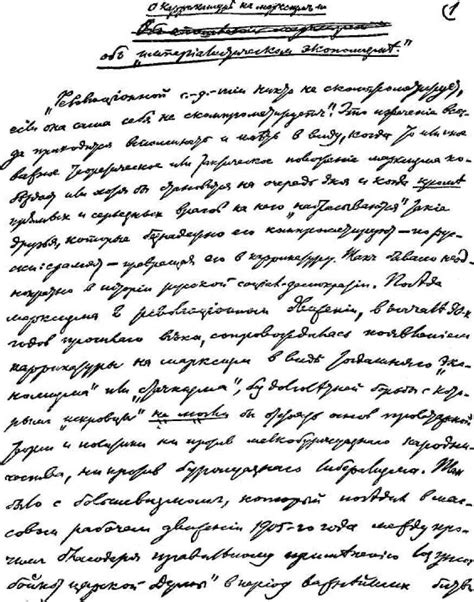 О каррикатурѣ на марксизм и
объ "имперіалистическом экономизмѣ."
(1
"Революціонной с.-д.-тіи никто не скомпрометирует,
если она сама себя не скомпрометирует." Это изреченіе все-
да приходится вспоминать и имѣть в виду, когда то или иное
важное теоретическое или тактическое положеніе марксизма по-
бѣждает или хотя бы становится на очередь дня и когда кромѣ
прямых и серьезных врагов на него "набрасываются" такіе
друзья, которые безнадежно его компрометируют — по рус-
ски: срамят — превращая его в каррикатуру. Такъ бывало неод-
нократно в исторіи русской соціал-демократіи. Побѣда
марксизма в революціонном движеніи, в началѣ 90-х
годов прошлаго вѣка, сопровождалась появленіем
каррикатуры на марксизм в видѣ тогдашняго "эко-
номизма" или "стачкизма", без долголѣтней борьбы с кото-
рым "искровцы" не могли бы отстоять основ пролетарской
теоріи и политики ни против мелкобуржуазнаго народни-
чества, ни против буржуазнаго либерализма. Так
было с большевизмом, который побѣдил в мас-
совом рабочем движеніи 1905-го года между про-
чим благодаря правильному примѣненію лозунга
"бойкот царской Думы" в період важнѣйших битв